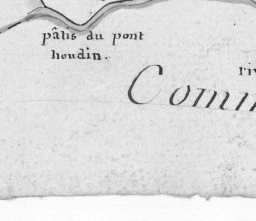 pâtis du pont
houdin.
riv
Comm